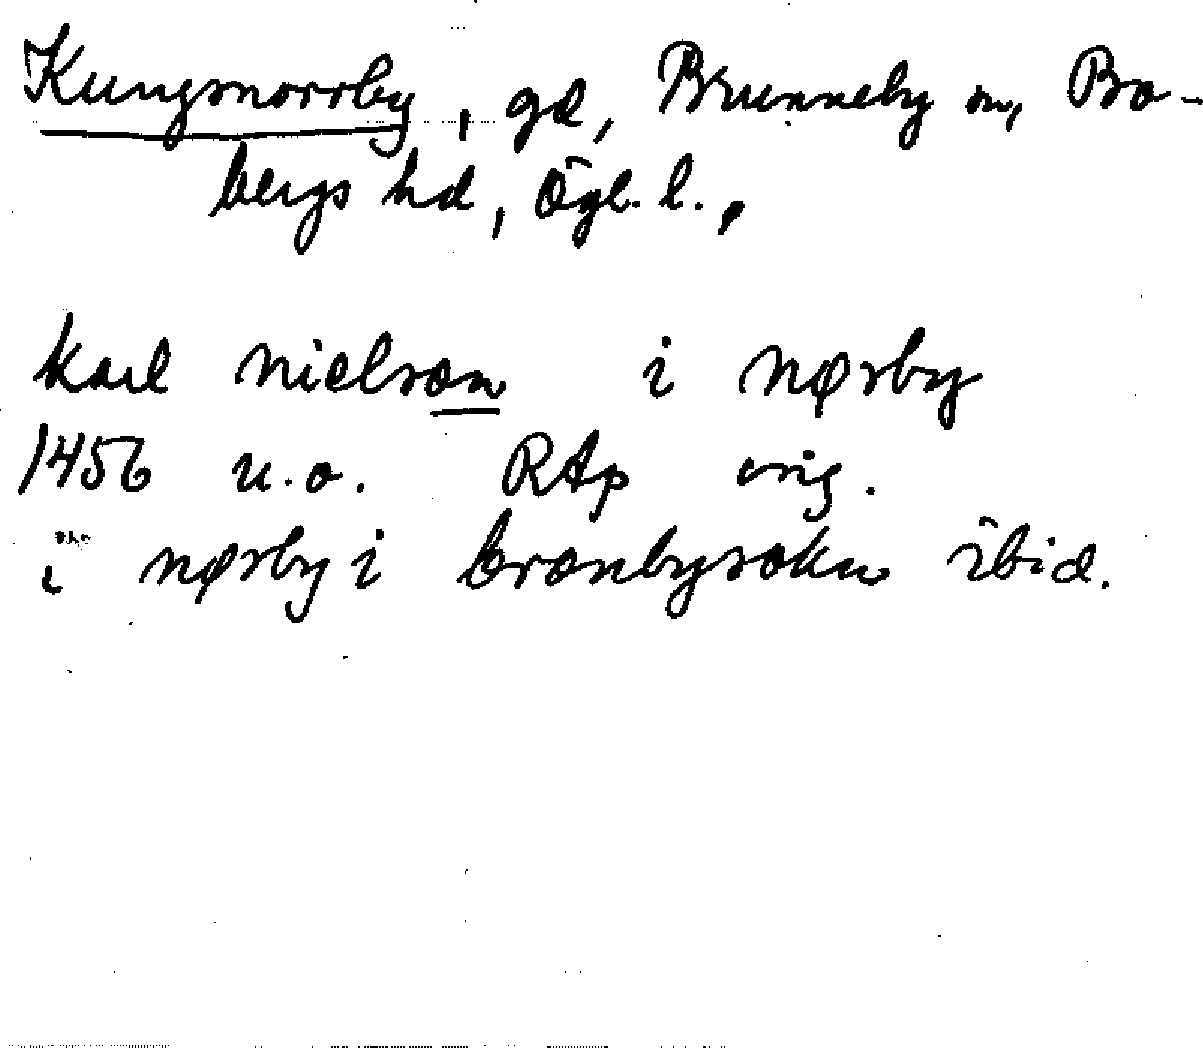 Kungsnorrby, gd, Brunneby sn, Bo-
bergs hd, Ögl. l.,
karl nielson i nørby
1456 u.o. RAp orig.
i nørby i brønbysokn ibid.